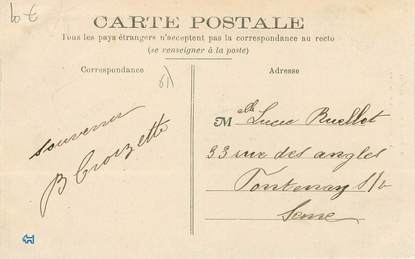 CARTE POSTALE
Tous les pays étrangers n'acceptent pas la correspondance au recto
(se renseigner à la poste)
Correspondance
Adresse
souvenir
B Croizette
Melle Lucie Ruellot
33 rue des angles
Fontenay S/b
Seine